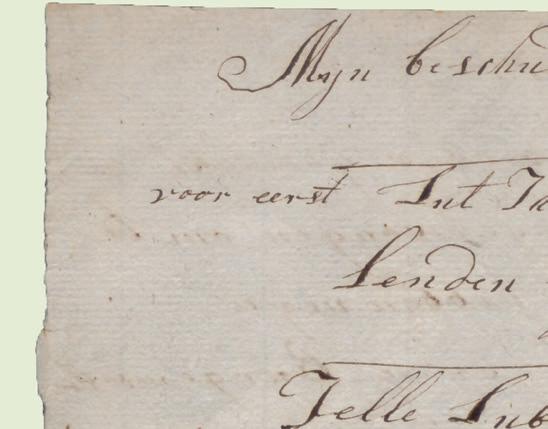 Mijn beschu
voor eerst Lut Ja
Lenden
Jelle Lub